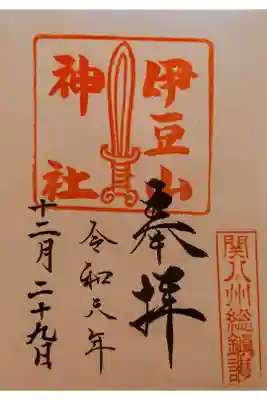 関八州総鎮護
奉拝
伊豆山
神社
令和元年
十二月二十九日